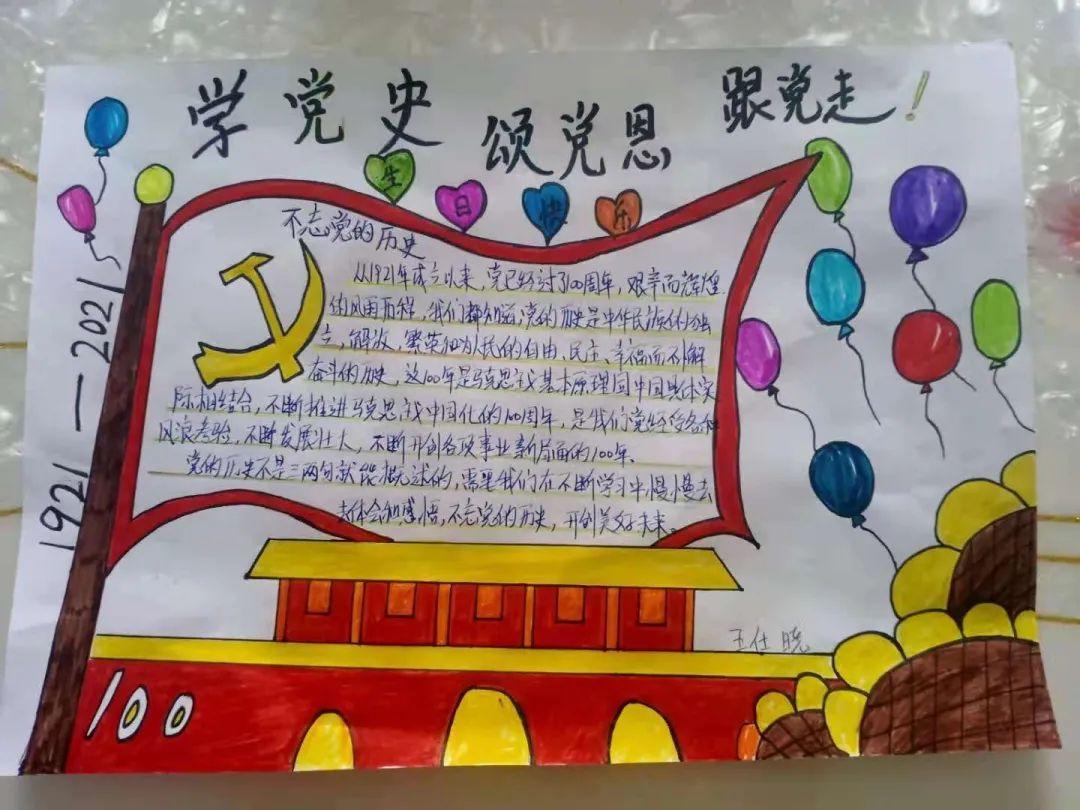 学党史 颂党恩 跟党走!
生日快乐
1921—2021
不忘党的历史
从1921年成立以来,党已经过了100周年,艰辛而辉煌
的风雨历程,我们都知道,党的历史是中华民族的独
立、解放、繁荣和为人民的自由、民主、幸福而不懈
奋斗的历史,这100年是马克思主义基本原理同中国具体实
际相结合,不断推进马克思主义中国化的100周年,是我们党经受各种
风浪考验,不断发展壮大,不断开创各项事业新局面的100年。
党的历史不是三两句就能概述的,需要我们在不断学习中慢慢去
去体会和感悟,不忘党的历史,开创美好未来。
王仕晓
100